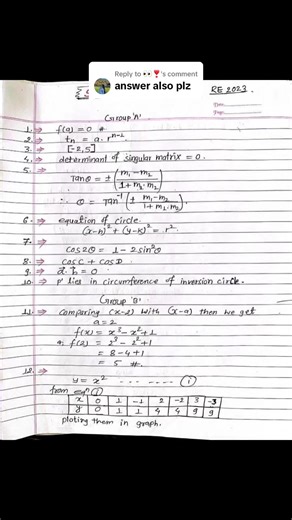 Reply to 👀❣️'s comment
answer also plz
RE 2023.
Group 'A'
1. ⇒ f(a) = 0 #
2. ⇒ tn = a. r^n-1
3. ⇒ [-2,5]
4. ⇒ determinant of singular matrix = 0.
5. ⇒
Tanθ = ± (m1 - m2 / 1 + m1. m2)
∴ θ = Tan^-1 (± m1 - m2 / 1 + m1. m2)
6. ⇒ equation of circle.
(x-h)² + (y-k)² = r².
7. ⇒
cos2θ = 1 - 2sin²θ
8. ⇒ cosC + cosD.
9. ⇒ = 0
10. ⇒ p' lies in circumference of inversion circle.
Group 'B'
11. ⇒ Comparing (x-2) with (x-a) then we get
a = 2
f(x) = x³ - x² + 1
f(2) = 2³ - 2² + 1
= 8 - 4 + 1
= 5 #.
12. ⇒
y = x² ... ... ... (i)
from eqn (i)
x 0 1 -1 2 -2 3 -3
y 0 1 1 4 4 9 9
ploting them in graph.